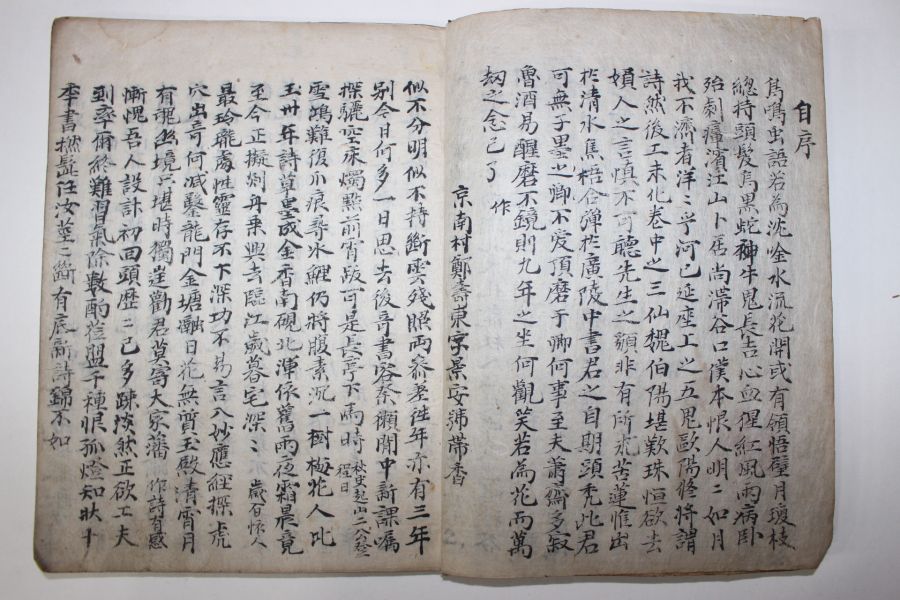 自序
鳥鳴虫語若為沈唫水流花開或有領悟璧月瓊枝
總持頭髮烏黑蛇神牛鬼長吉心血猩紅風雨病卧
殆劇瘴濱江山卜居尚滯谷口僕本恨人明二如月
我不濟者洋二乎河已延座上之五鬼歐陽修將謂
詩然後工未化卷中之三仙魏伯陽堪歎珠恒欲去
娟人之言慎不可聽先生之額非有所求苦蓮惟出
於清水焦梧合彈於廣陵中書君之自期頭禿此君
可無子墨之卿不爱頂磨于卿何事至夫蕭齋多寂
魯酒易醒磨不鏡則九年之坐何觀笑若為花而萬
劫之念已了 作
京南村鄭壽東字景安號帶香
似不分明似不持斷雲殘照兩參差往年亦有三年
别今日何多一日思去後奇書容荼懶閒中新課囑
探驪空床燭點前宵跋可是長亭下雨時
雪鴻難復爪痕尋水鯉仍將腹素沉一樹梅花人此
玉卅年詩草墨成金香南硯北渾依舊雨夜霜晨竟
至今正擬剡舟乘興去臨江歲暮宅深二 歲召怀人
最玲瓏處性靈存不下深功不易言入妙應經探虎
穴出奇何減鑿龍門金塘瀜日花無質玉殿清霄月
有魂幽境只堪時獨逞勸君莫寄大家藩 作詩有感
慚愧吾人設計初回頭歷二已多踈淡然正欲工夫
到率爾終難習氣除數酌茫盤千種恨孤燈知狀十
季書撚髭任汝莖二斷有底新詩錦不如